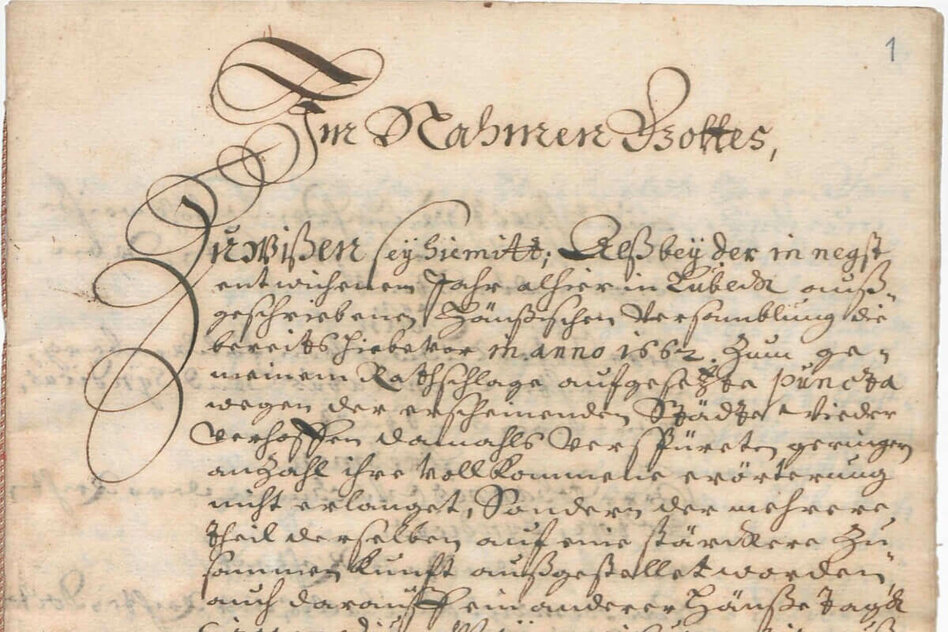 1
Im Nahmen Gottes,
Zu wißen sey hiemitt; Alß bey der in negst
entwichenem Jahr alhier in Lübeck auß
geschriebenen Hänsischen Versamblung die
bereits hiebevor in anno 1662. Zum ge-
meinem Rathschlage aufgesetzte puncta
wegen der erscheinenden Städte wieder
verhoffen damahls verspüreten geringen
anzahl ihre vollkommene erörterung
nicht erlanget, Sondern der mehrere
theil derselben auf eine stärckere Zu
sammen kunfft außgestellet worden,
auch darauff ein anderer Hänße Tagk